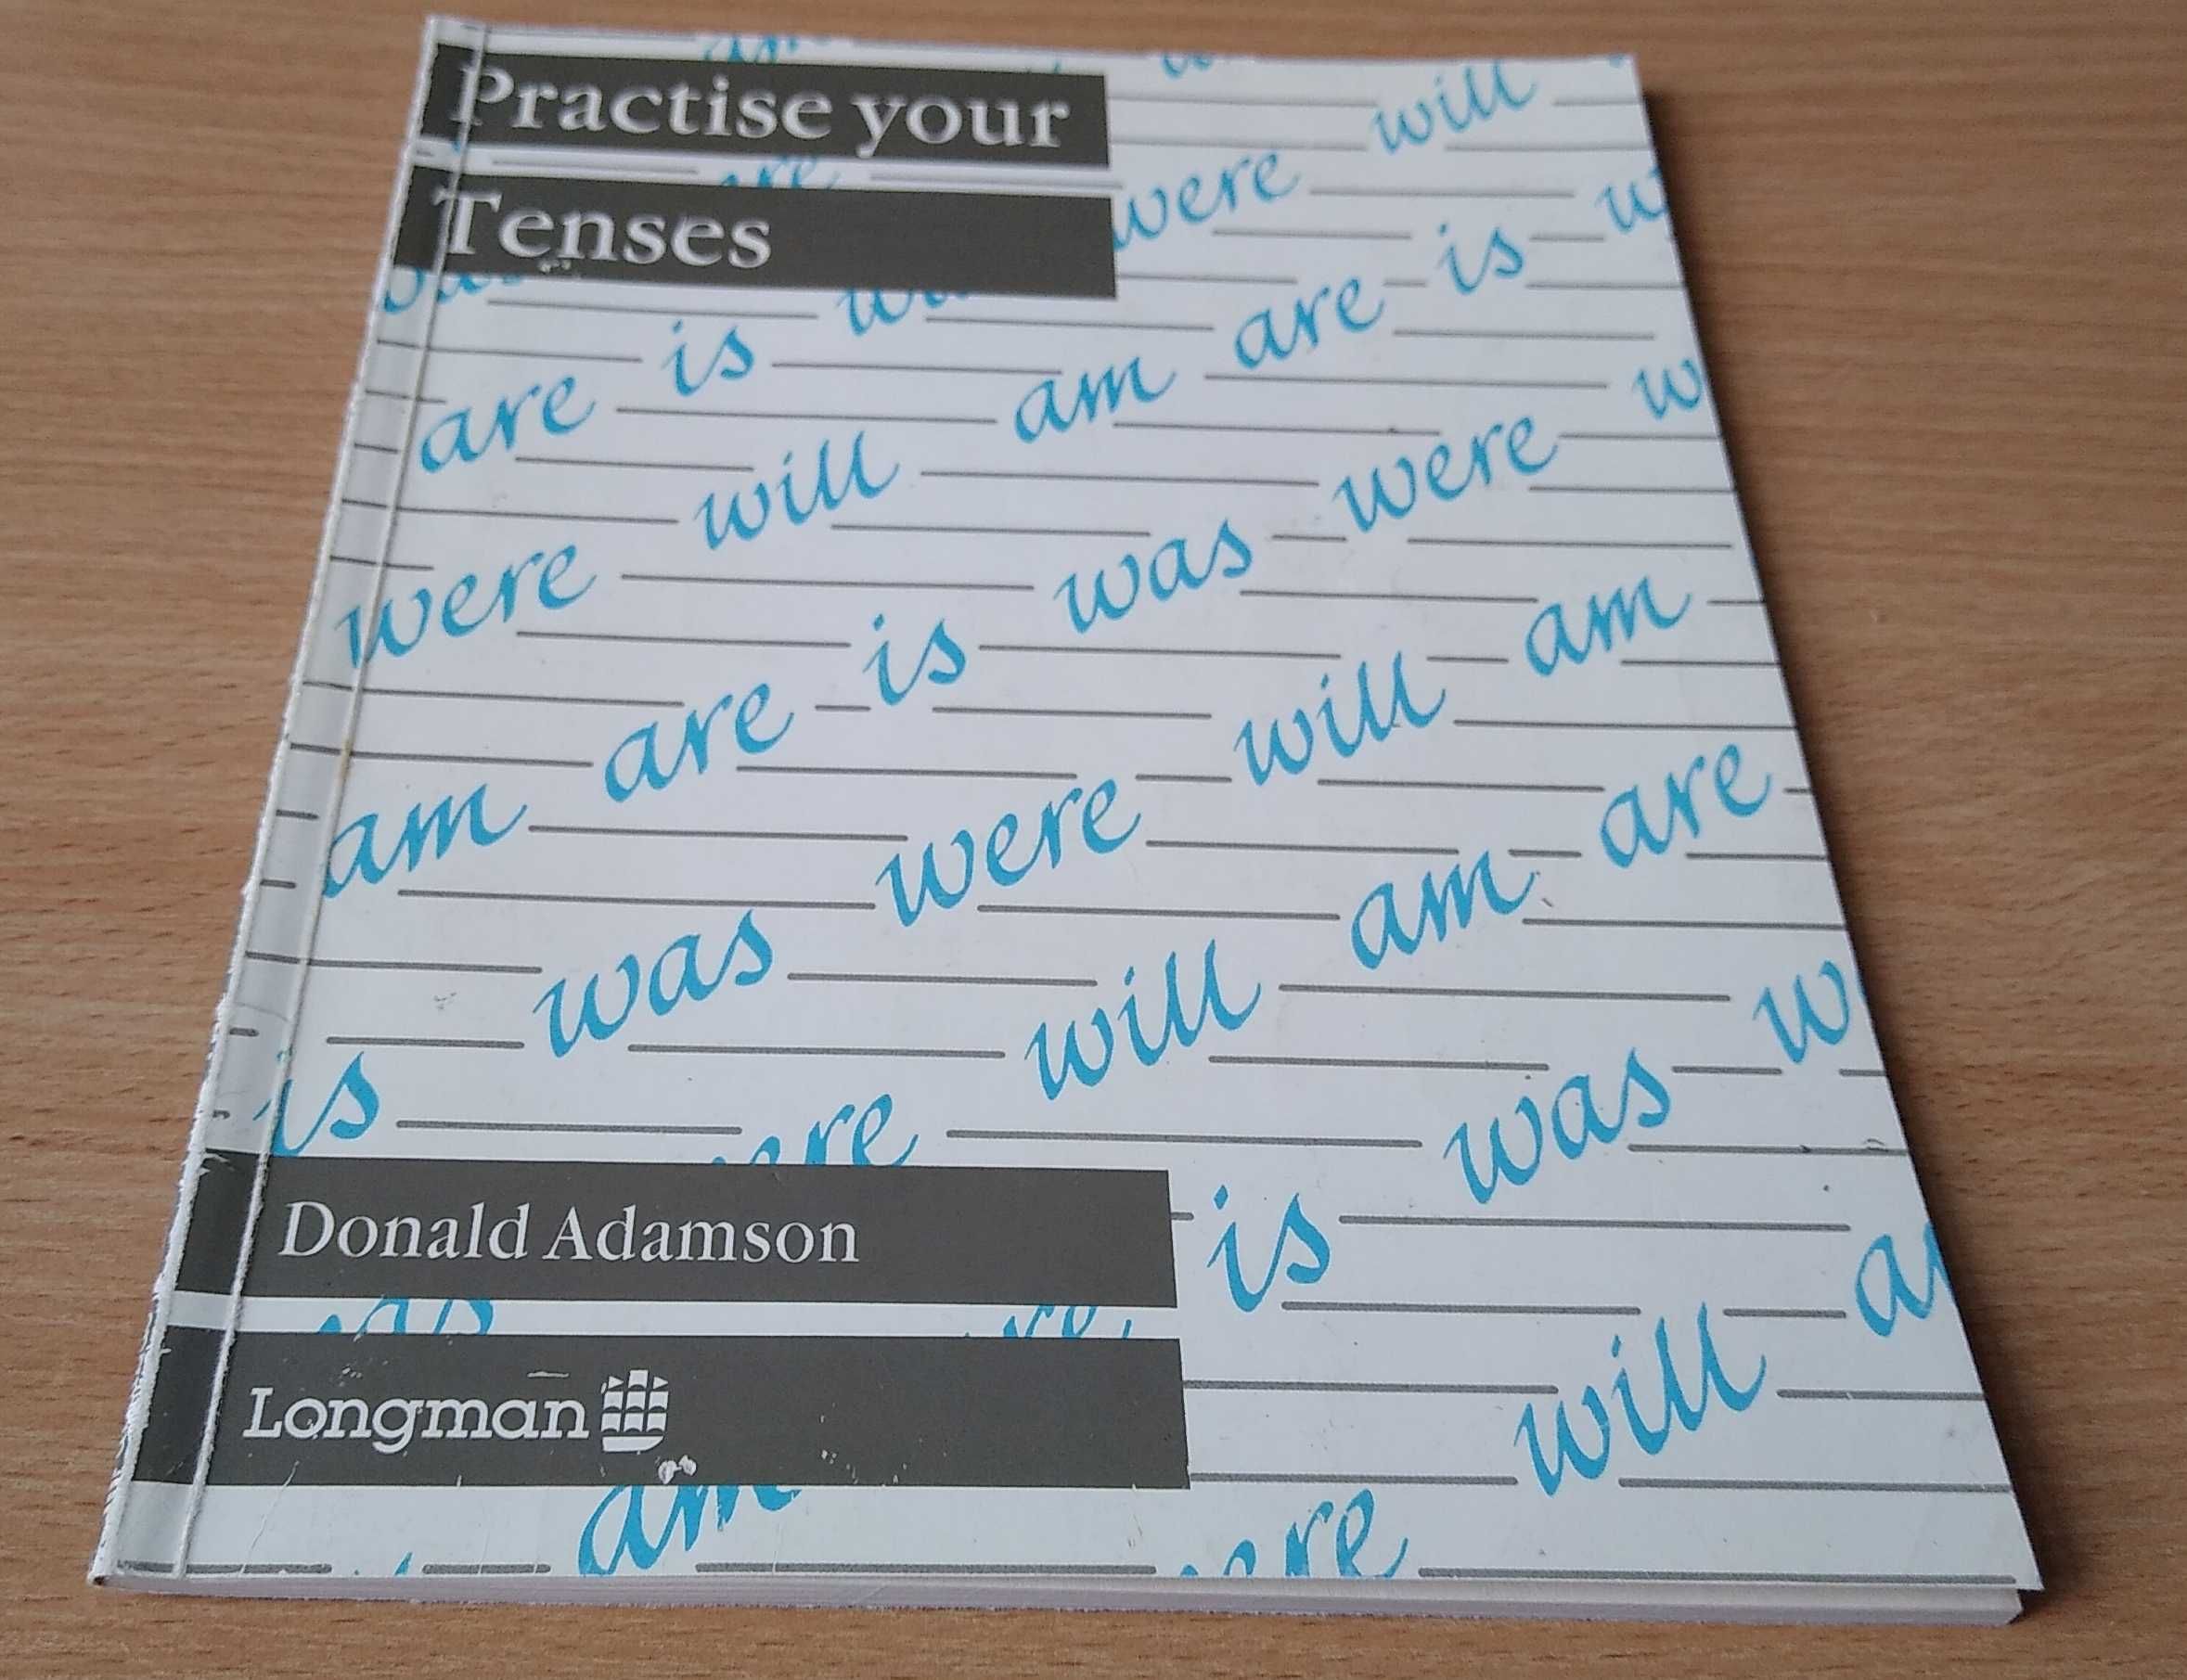 Practise your
will
were
Tenses
is
are
is
am
are
were
will
was
were
is
am
are
will
am
were
are
was
am
will
is
was
Donald Adamson
is
Longman
will
am